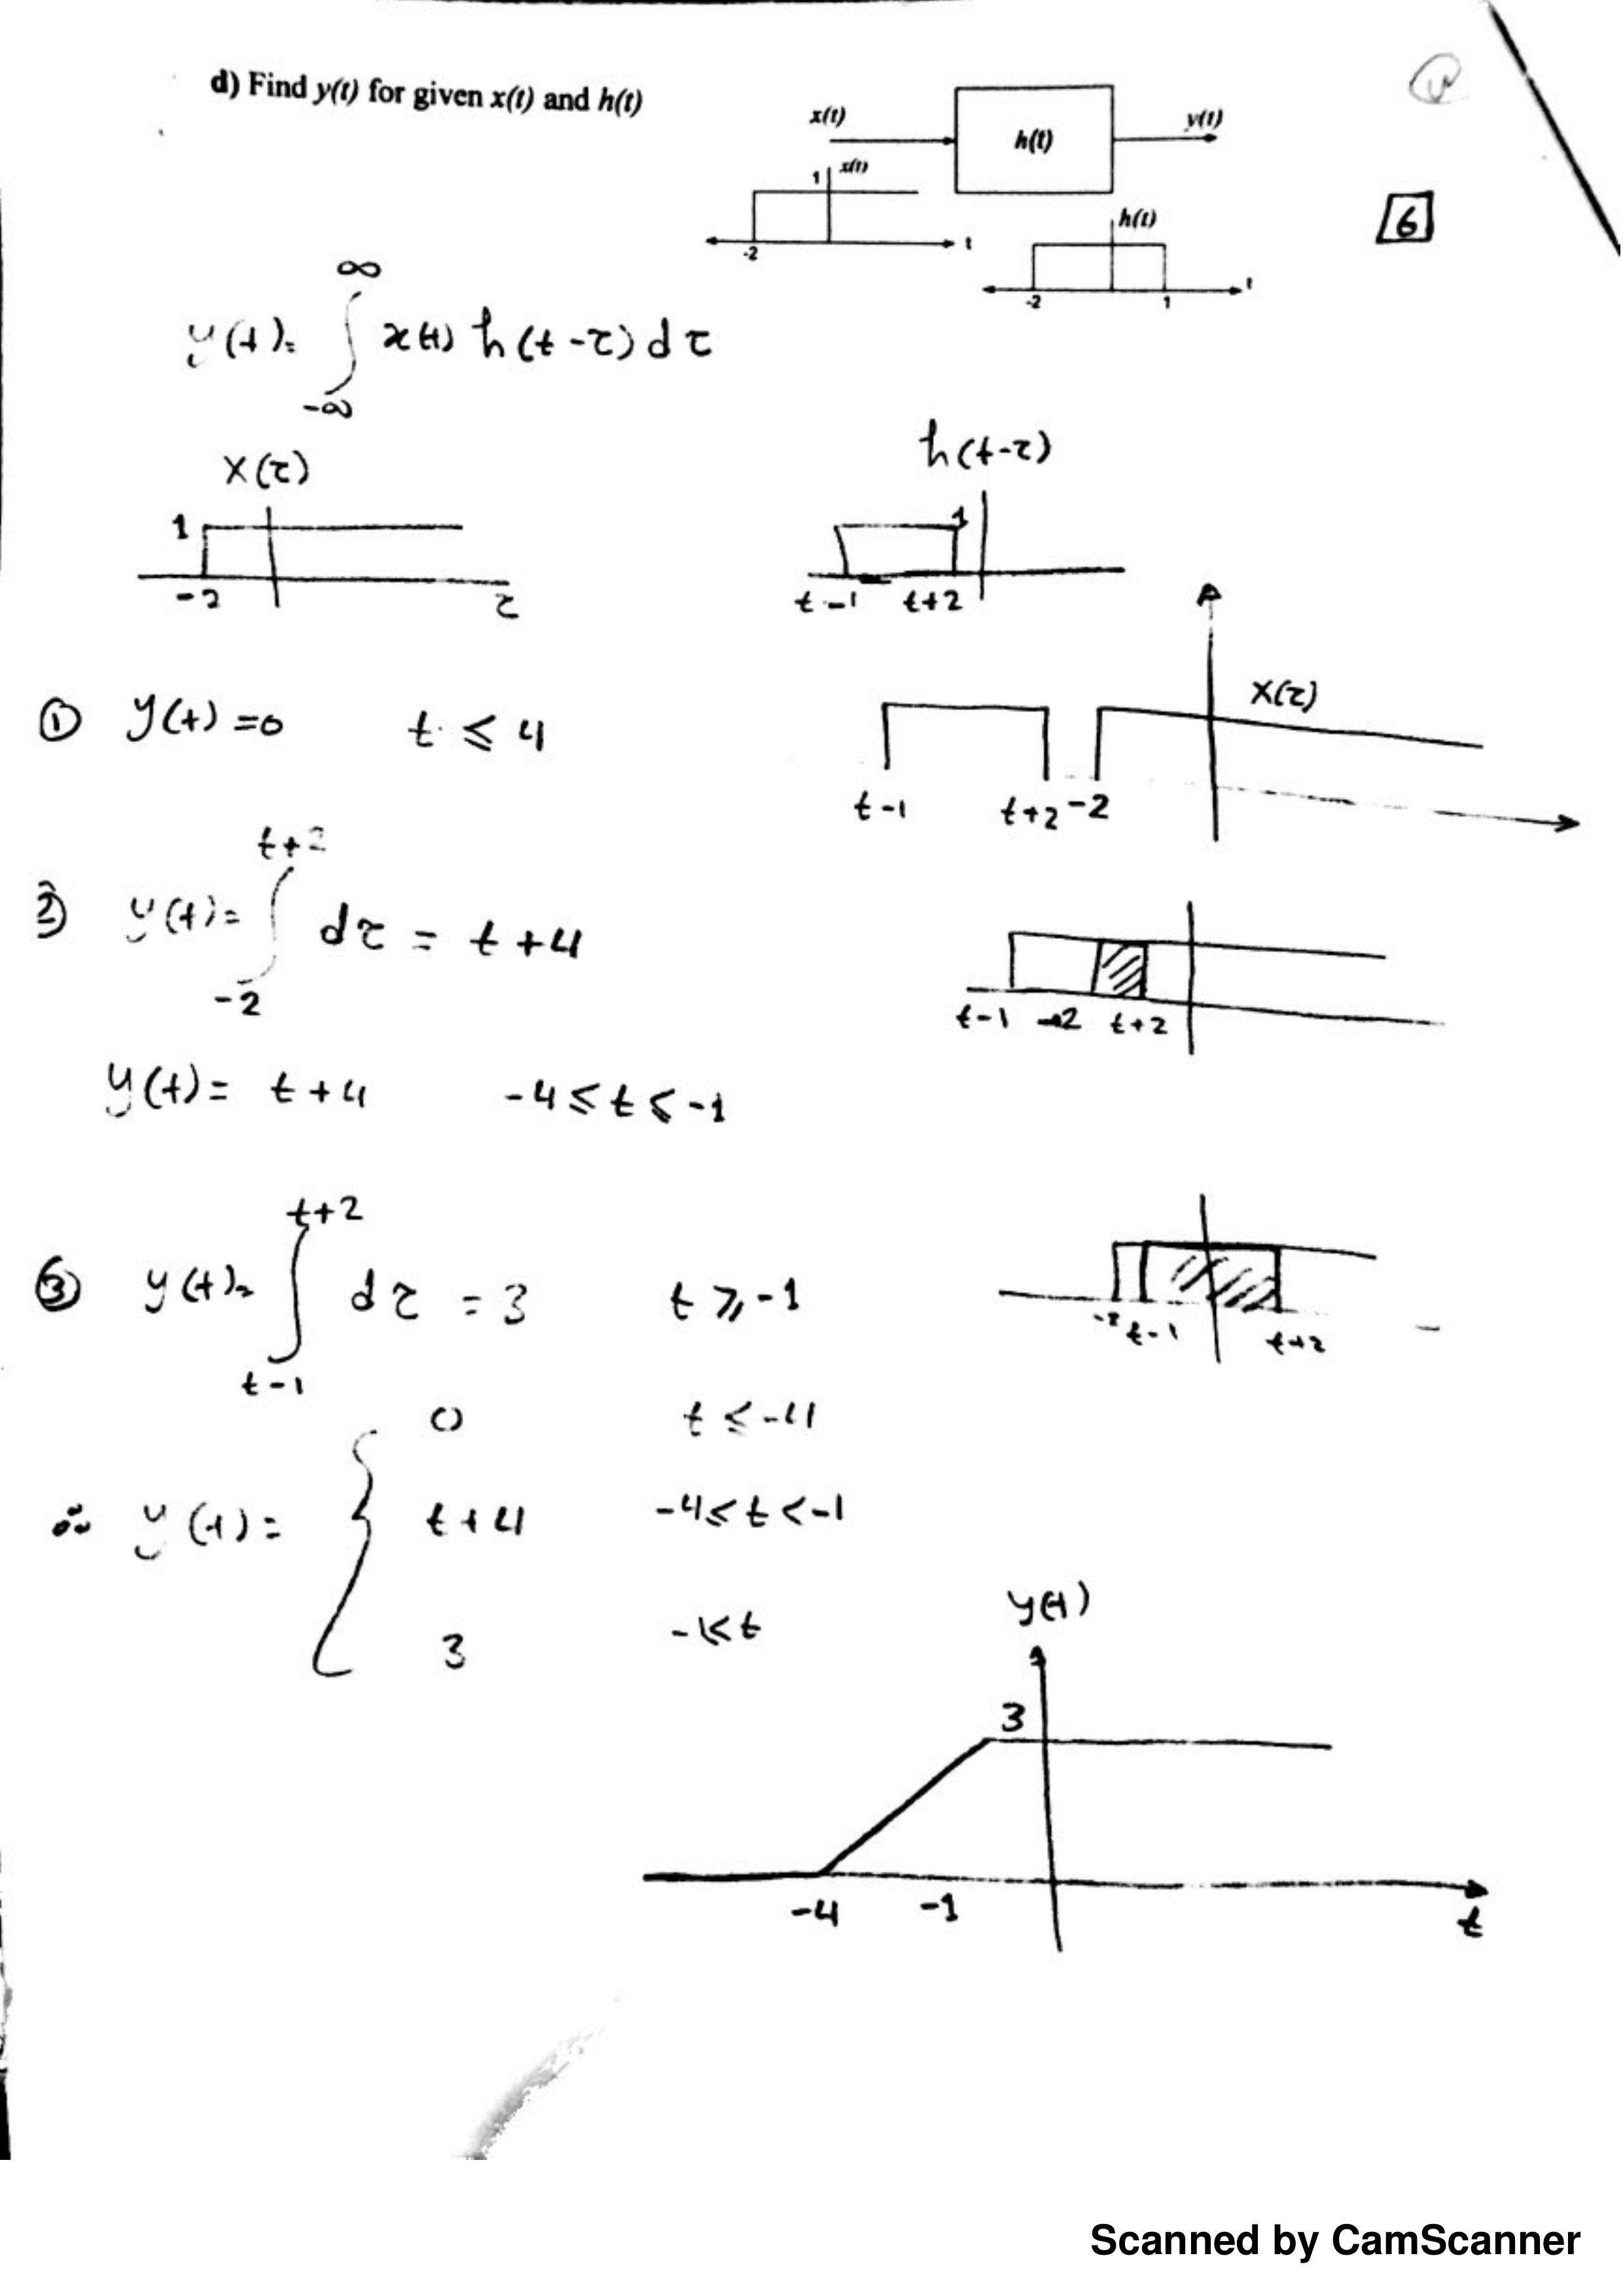 d) Find y(t) for given x(t) and h(t)
x(t)
h(t)
y(t)
1
x(t)
-2
t
h(t)
-2
1
t
6
y(t)= ∫ x(t) h(t-τ) dτ
∞
-∞
x(τ)
1
-2
τ
h(t-τ)
1
t-1
t+2
① y(t)=0 t ≤ 4
x(τ)
t-1
t+2
-2
t+2
② y(t)= ∫ dτ = t+4
-2
t-1
-2
t+2
y(t)= t+4 -4 ≤ t ≤ -1
t+2
③ y(t)= ∫ dτ = 3 t ≥ -1
t-1
-2
t-1
t+2
0 t ≤ -4
∴ y(t)= { t+4 -4 ≤ t < -1
3 -1≤ t
y(t)
3
-4
-1
t
Scanned by CamScanner